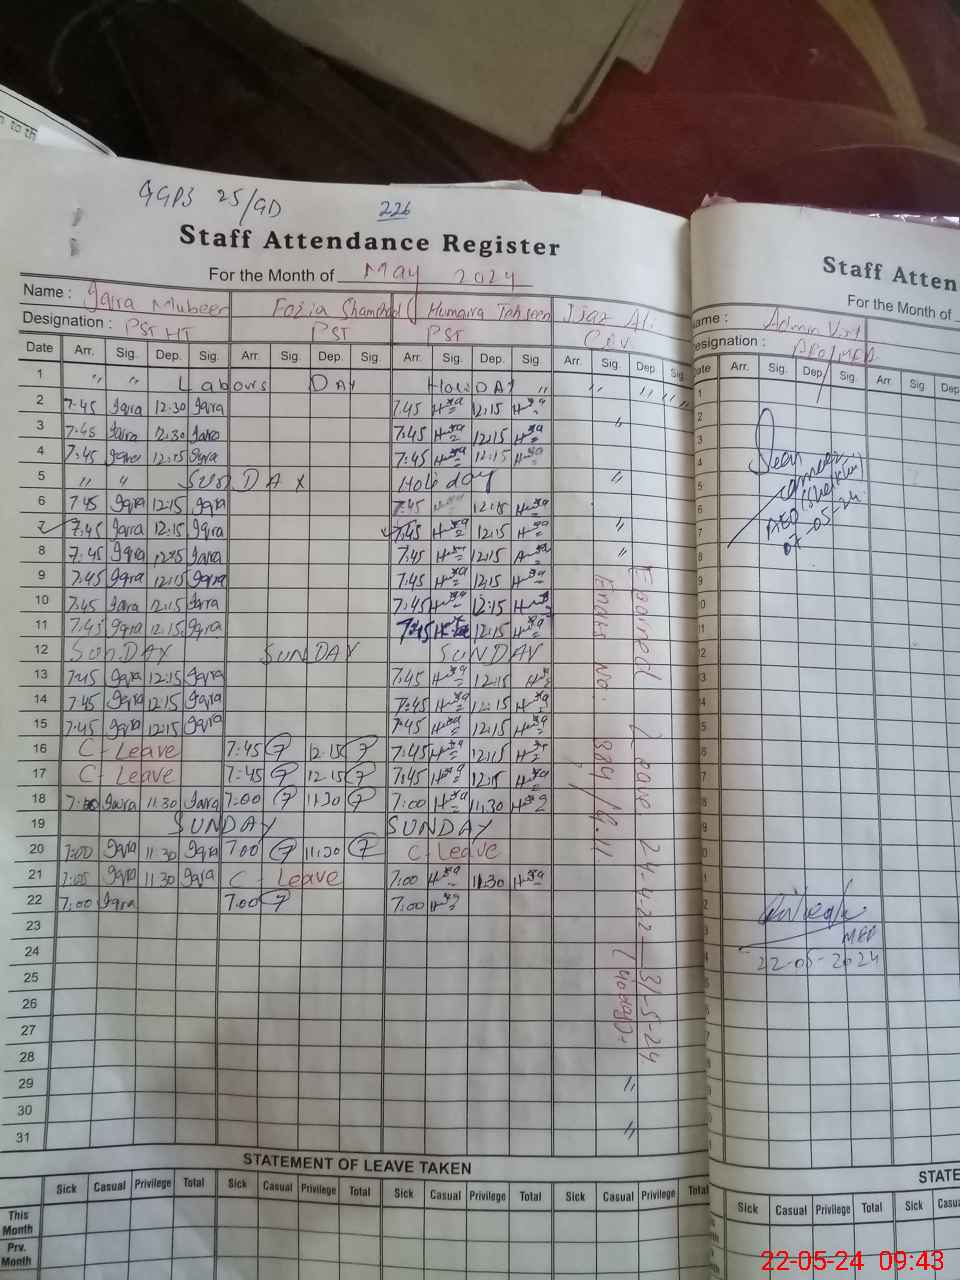 to th
GGPS 25/GD
226
Staff Attendance Register
For the Month of May 2024
Name : Iqra Mubeen Fozia Shamshad Humaira Tehseen Ijaz Ali
Designation : PST HT PST PST
Date Arr. Sig. Dep. Sig. Arr. Sig. Dep. Sig. Arr. Sig. Dep. Sig. Arr. Sig. Dep. Sig.
1 " " Labours DAY HoliDAY " " " " " "
2 7.45 Iqra 12.30 Iqra 7.45 12.15
3 7.45 Iqra 12.30 Iqra 7.45 12.15 "
4 7.45 Iqra 12.15 Iqra 7.45 12.15
5 " " SunDAY Holi day "
6 7.45 Iqra 12.15 Iqra 7.45 12.15
7 7.45 Iqra 12.15 Iqra 7.45 12.15 "
8 7.45 Iqra 12.15 Iqra 7.45 12.15 "
9 7.45 Iqra 12.15 Iqra 7.45 12.15
10 7.45 Iqra 12.15 Iqra 7.45 12.15
11 7.45 Iqra 12.15 Iqra 7.45 12.15
12 SunDAY SUNDAY SUNDAY
13 7.45 Iqra 12.15 Iqra 7.45 12.15
14 7.45 Iqra 12.15 Iqra 7.45 12.15
15 7.45 Iqra 12.15 Iqra 7.45 12.15
16 C-Leave 7.45 12.15 7.45 12.15
17 C-Leave 7.45 12.15 7.45 12.15
18 7:00 Iqra 11.30 Iqra 7.00 11.30 7.00 11.30
19 SUNDAY SUNDAY
20 7:00 Iqra 11.30 Iqra 7.00 11.30 C-Leave
21 7:00 Iqra 11.30 Iqra C-Leave 7.00 11.30
22 7:00 Iqra 7.00 7.00
23
24
25
26
27
28
29 "
30
31 "
Leave 24-4-22 31-5-24
No: 884/G.11
STATEMENT OF LEAVE TAKEN
Sick Casual Privilege Total Sick Casual Privilege Total Sick Casual Privilege Total Sick Casual Privilege Total
This Month
Prv. Month
Staff Atten
For the Month of
ame : Admin Visit
esignation : AEO/MEA
Date Arr. Sig. Dep. Sig. Arr. Sig. Dep
Seen
AEO
07-05-24
MEA
22-05-2024
STATE
Sick Casual Privilege Total Sick Casua
22-05-24 09:43